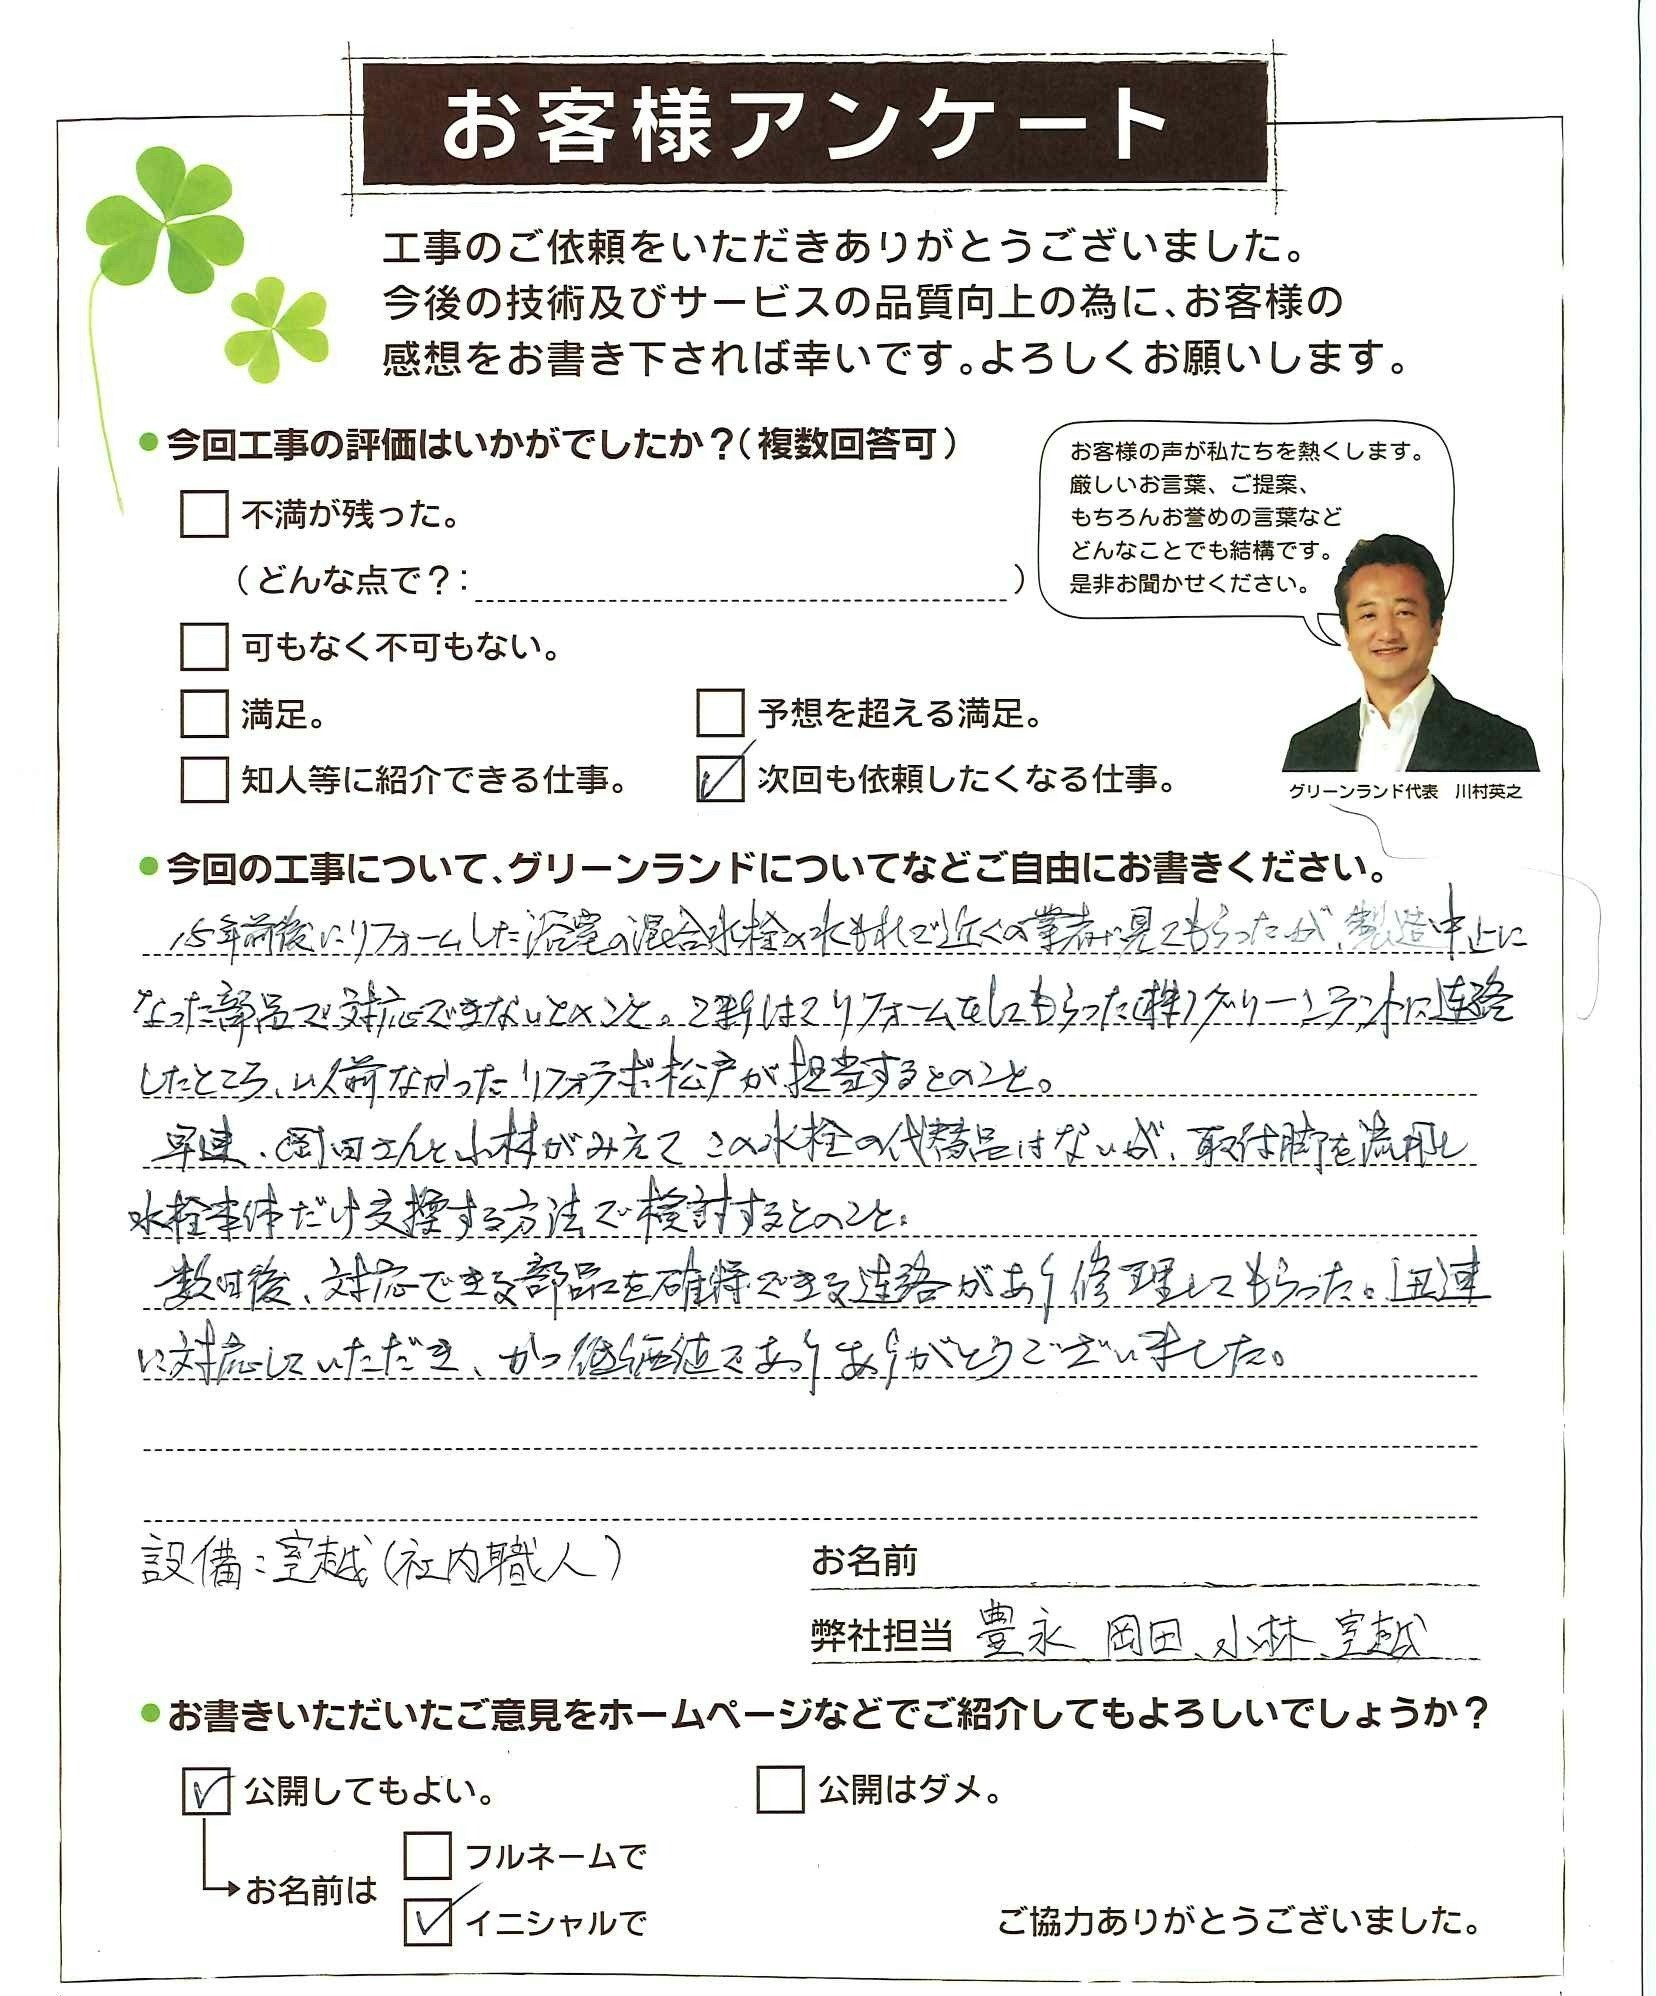 お客様アンケート
工事のご依頼をいただきありがとうございました。
今後の技術及びサービスの品質向上の為に、お客様の
感想をお書き下されば幸いです。よろしくお願いします。
●今回工事の評価はいかがでしたか?(複数回答可)
お客様の声が私たちを熱くします。
厳しいお言葉、ご提案、
もちろんお誉めの言葉など
どんなことでも結構です。
是非お聞かせください。
不満が残った。
(どんな点で?: )
可もなく不可もない。
満足。
予想を超える満足。
知人等に紹介できる仕事。
次回も依頼したくなる仕事。
グリーンランド代表 川村英之
●今回の工事について、グリーンランドについてなどご自由にお書きください。
15年前後にリフォームした浴室の混合水栓の水もれで近くの業者が見てもらったが、製造中止に
なった部品で対応できないとのこと。リフォームをしてもらった(株)グリーンランドに連絡
したところ、以前なかったリフォラボ松戸が担当するとのこと。
早速、岡田さんと小林がみえて この水栓の代替品はないが、取付脚を流用し
水栓本体だけ交換する方法で検討するとのこと。
数日後、対応できる部品を確保できる連絡があり修理してもらった。迅速
に対応していただき、かつ低価値でありありがとうございました。
設備:室越(社内職人)
お名前
弊社担当 豊永 岡田、小林、室越
●お書きいただいたご意見をホームページなどでご紹介してもよろしいでしょうか?
公開してもよい。
公開はダメ。
お名前は
フルネームで
イニシャルで
ご協力ありがとうございました。